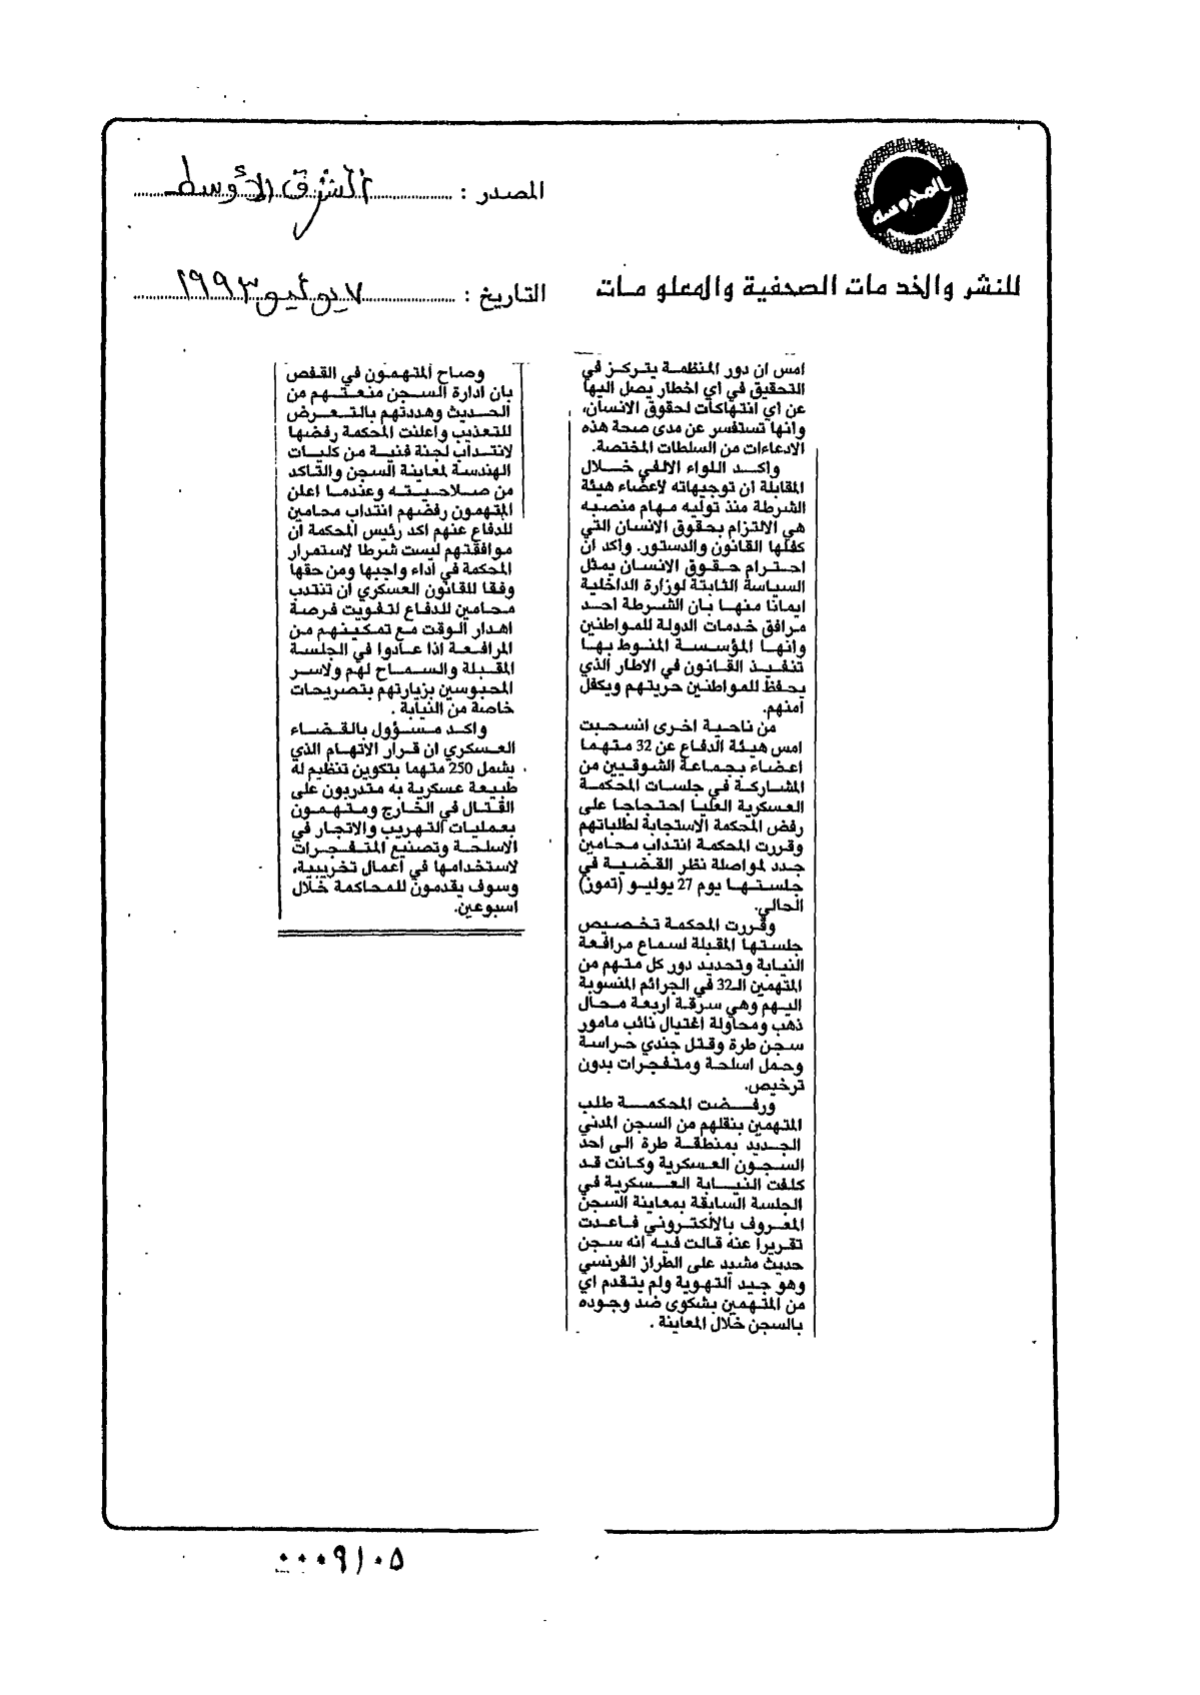 المحروسة
للنشر والخدمات الصحفية والمعلومات
المصدر : الشرق الأوسط
التاريخ : ٧ يوليو ١٩٩٣
امس ان دور المنظمة يتركز في
التحقيق في اي اخطار يصل اليها
عن اي انتهاكات لحقوق الانسان،
وانها تستفسر عن مدى صحة هذه
الادعاءات من السلطات المختصة.
واكد اللواء الالفي خلال
المقابلة ان توجيهاته لاعضاء هيئة
الشرطة منذ توليه مهام منصبه
هي الالتزام بحقوق الانسان التي
كفلها القانون والدستور. واكد ان
احترام حقوق الانسان يمثل
السياسة الثابتة لوزارة الداخلية
ايمانا منها بان الشرطة احد
مرافق خدمات الدولة للمواطنين
وانها المؤسسة المنوط بها
تنفيذ القانون في الاطار الذي
يحفظ للمواطنين حريتهم ويكفل
امنهم.
من ناحية اخرى انسحبت
امس هيئة الدفاع عن 32 متهما
اعضاء بجماعة الشوقيين من
المشاركة في جلسات المحكمة
العسكرية العليا احتجاجا على
رفض المحكمة الاستجابة لطلباتهم
وقررت المحكمة انتداب محامين
جدد لمواصلة نظر القضية في
جلستها يوم 27 يوليو (تموز)
الحالي.
وقررت المحكمة تخصيص
جلستها المقبلة لسماع مرافعة
النيابة وتحديد دور كل متهم من
المتهمين الـ32 في الجرائم المنسوبة
اليهم وهي سرقة اربعة محال
ذهب ومحاولة اغتيال نائب مامور
سجن طرة وقتل جندي حراسة
وحمل اسلحة ومتفجرات بدون
ترخيص.
ورفضت المحكمة طلب
المتهمين بنقلهم من السجن المدني
الجديد بمنطقة طرة الى احد
السجون العسكرية وكانت قد
كلفت النيابة العسكرية في
الجلسة السابقة بمعاينة السجن
المعروف بالالكتروني فاعدت
تقريرا عنه قالت فيه انه سجن
حديث مشيد على الطراز الفرنسي
وهو جيد التهوية ولم يتقدم اي
من المتهمين بشكوى ضد وجوده
بالسجن خلال المعاينة .
وصاح المتهمون في القفص
بان ادارة السجن منعتهم من
الحديث وهددتهم بالتعرض
للتعذيب واعلنت المحكمة رفضها
لانتداب لجنة فنية من كليات
الهندسة لمعاينة السجن والتاكد
من صلاحيته وعندما اعلن
المتهمون رفضهم انتداب محامين
للدفاع عنهم اكد رئيس المحكمة ان
موافقتهم ليست شرطا لاستمرار
المحكمة في اداء واجبها ومن حقها
وفقا للقانون العسكري ان تنتدب
محامين للدفاع لتفويت فرصة
اهدار الوقت مع تمكينهم من
المرافعة اذا عادوا في الجلسة
المقبلة والسماح لهم ولاسر
المحبوسين بزيارتهم بتصريحات
خاصة من النيابة .
واكد مسؤول بالقضاء
العسكري ان قرار الاتهام الذي
يشمل 250 متهما بتكوين تنظيم له
طبيعة عسكرية به متدربون على
القتال في الخارج ومتهمون
بعمليات التهريب والاتجار في
الاسلحة وتصنيع المتفجرات
لاستخدامها في اعمال تخريبية،
وسوف يقدمون للمحاكمة خلال
اسبوعين.
٠٠٠٩١٠٥